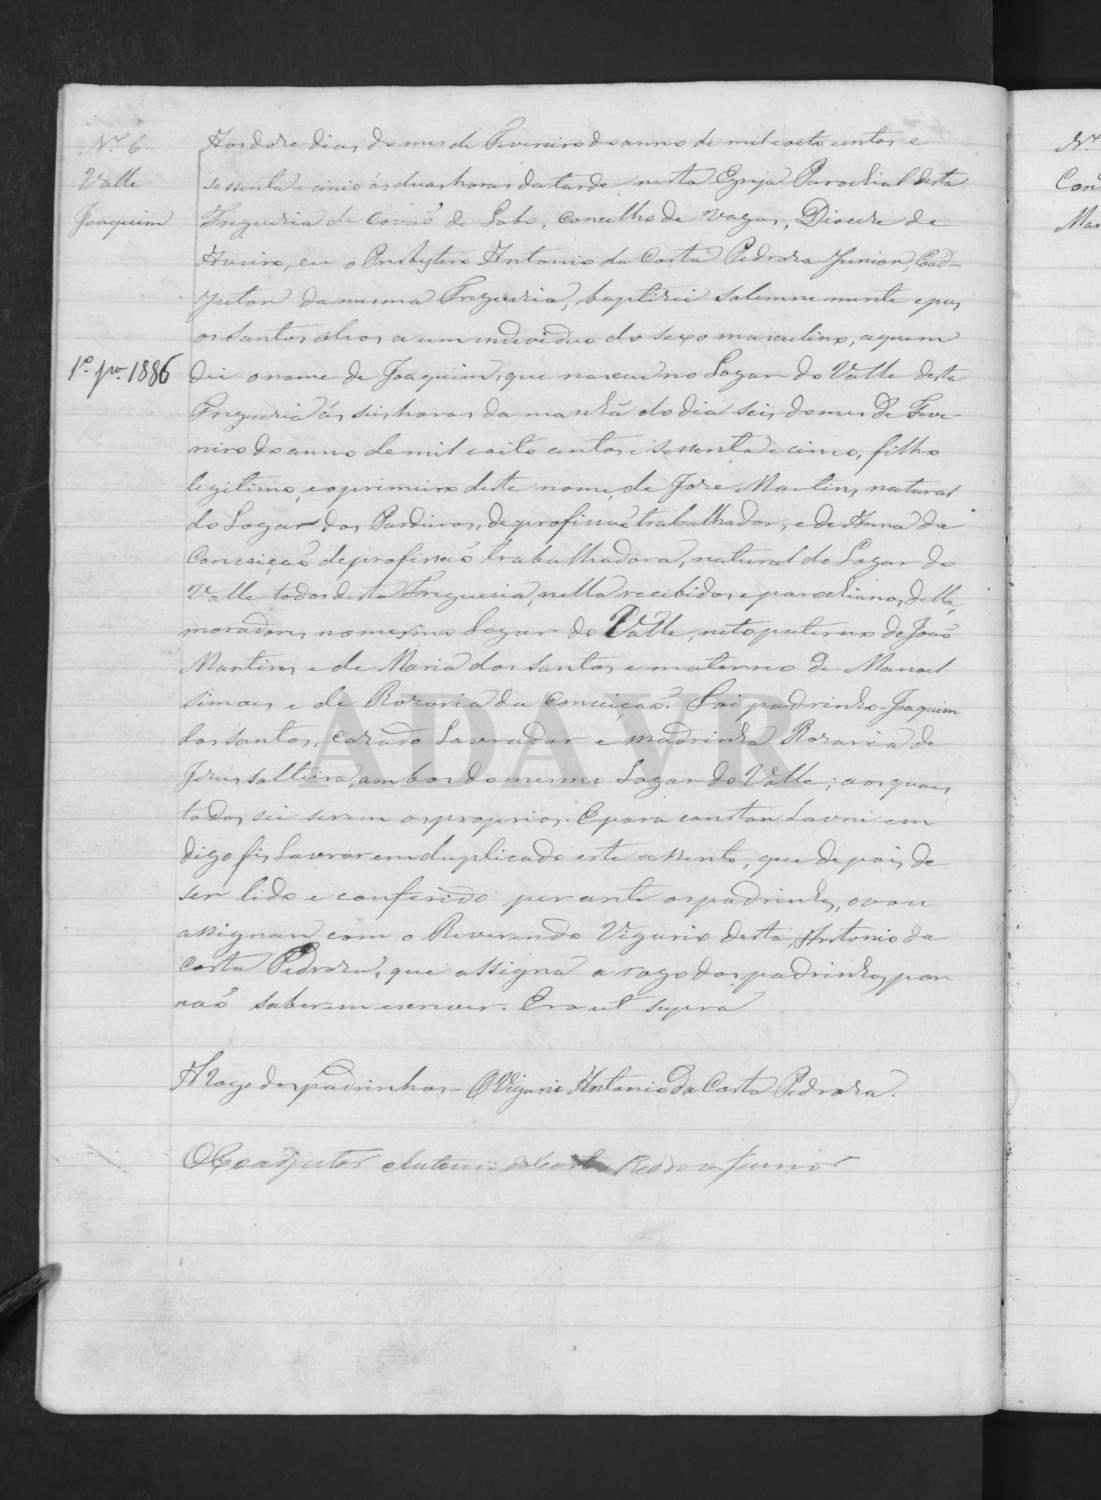 Nº 6
Valle
Joaquim
1ª pª 1886
Aos doze dias do mes de Fevereiro do anno de mil e oito centos e
sessenta e cinco ás duas horas da tarde nesta Egreja Parochial desta
Freguezia de Covaõ de Lobo, concelho de Vagos, Diocese de
Aveiro, eu o Presbytero Antonio da Costa Pedroza Junior, Coad-
jutor da mesma Freguezia, baptizei solemnemente e pus
os santos oleos a um individuo do sexo masculino, a quem
dei o nome de Joaquim, que nasceu no Logar do Valle desta
Freguezia ás seis horas da manhã do dia seis do mes de Feve-
reiro do anno de mil e oito centos e sessenta e cinco, filho
legitimo, e o primeiro deste nome, de Joze Martins, natural
do Logar dos Pardieiros, de profissaõ trabalhador, e de Anna da
Conceiçaõ de profissaõ trabalhadora, natural do Logar do
Valle todos desta Freguezia, nella recebidos e parochianos, della,
moradores no mesmo Logar do Valle, neto paterno de Joaõ
Martins e de Maria dos Santos e materno de Manoel
Simoes e de Rozaria da Conceiçaõ. Foi padrinho Joaquim
dos Santos, cazado Lavrador e madrinha Rozaria de
Jesus solteira, ambos do mesmo Logar do Valle; aos quaes
todos sei serem os proprios. E para constar Lavrei em
digo fis Lavrar em duplicado este assento, que depois de
ser lido e conferido perante os padrinhos, o vou
assignar com o Reverendo Vigario desta, Antonio da
Costa Pedroza, que assigna a rogo dos padrinhos por
naõ saberem escrever. Era ut supra
A Rogo dos padrinhos - O Vigario Antonio da Costa Pedroza.
O Coadjutor Antonio da Costa Pedroza Junior
ADAVR
Nº
Con
Mar